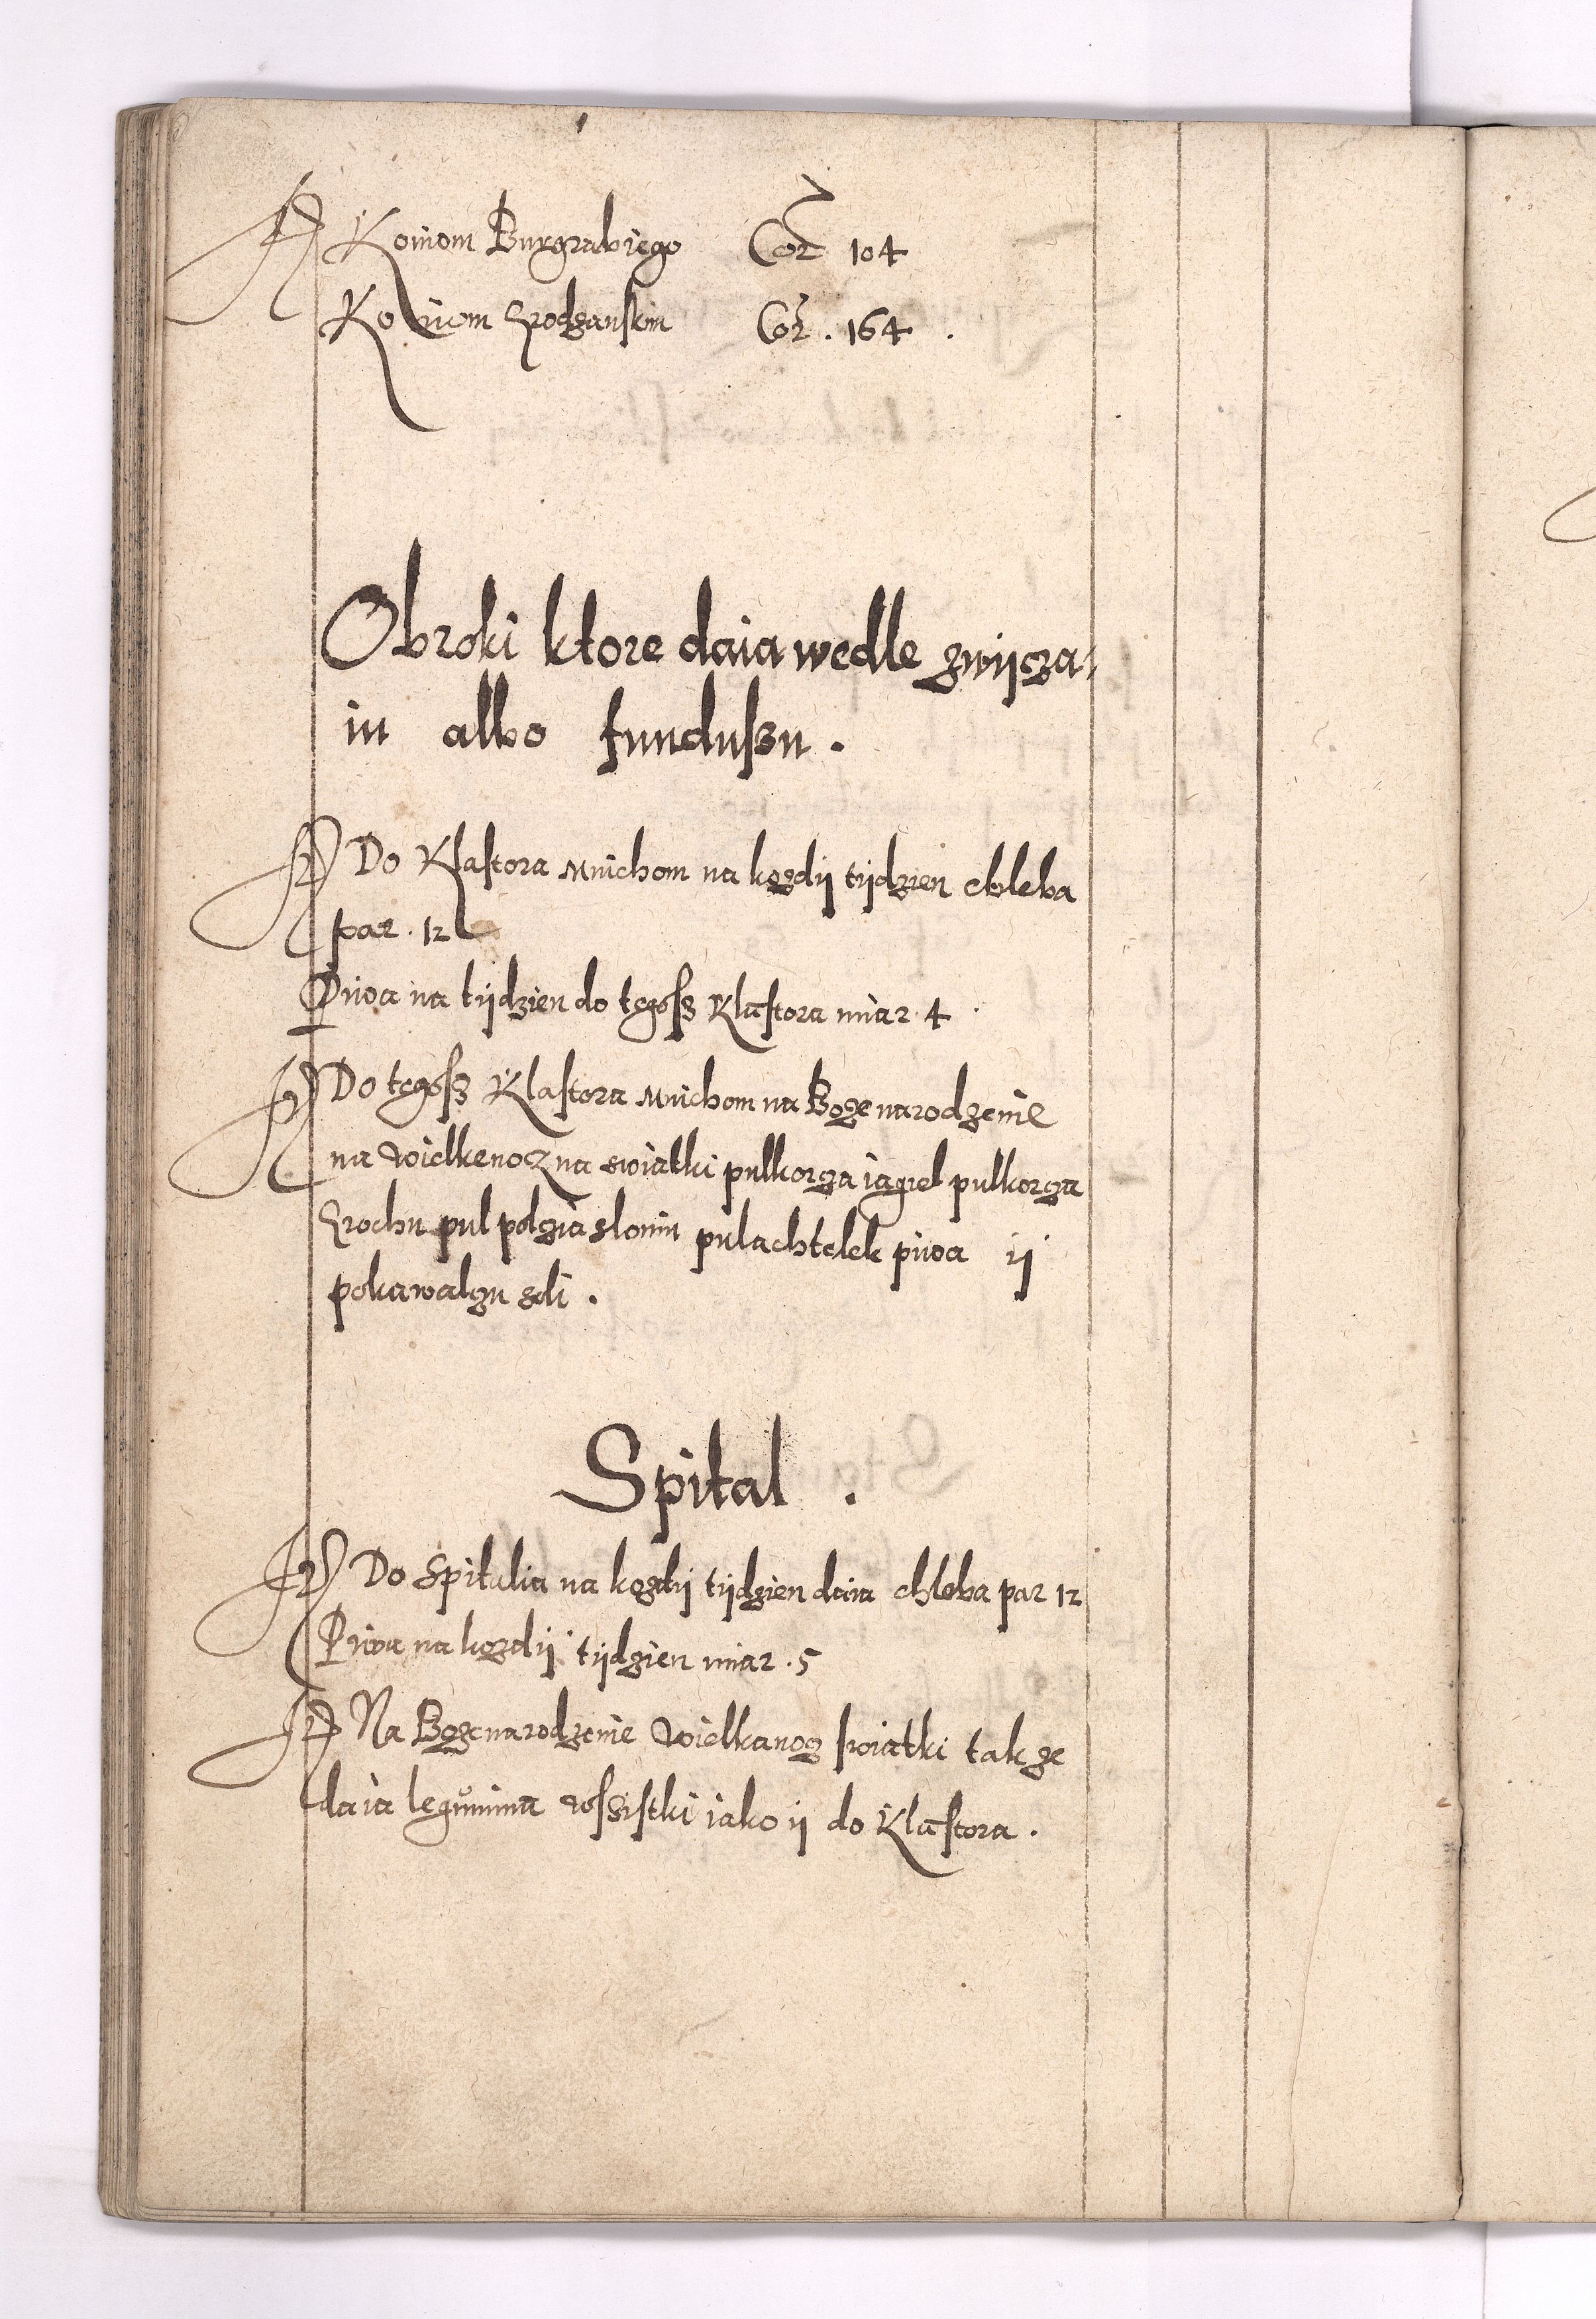 Koniom Burgrabiego Cor 104
Koniom Grodzanskim Cor. 164.
Obroki ktore daia wedle zwijcza-
iu albo funduszu.
Do Klastora Mnichom na kozdij tijdzien chleba
par. 12
Piwa na tijdzien do tegosz Klastora miar 4
Do tegosz Klastora Mnichom na Boze narodzenie
na wielkenocz na swiatki pulkorza iagiel pulkorza
Grochu pul polczia slonin pulachtelek piwa ij
pokawalczu soli.
Spital.
Do Spitalia na kozdij tijdzien daia chleba par 12
Piwa na kozdij tijdzien miar. 5
Na Boze narodzenie wielkanoz swiatki takze
daia legumina wszistki iako ij do Klastora.